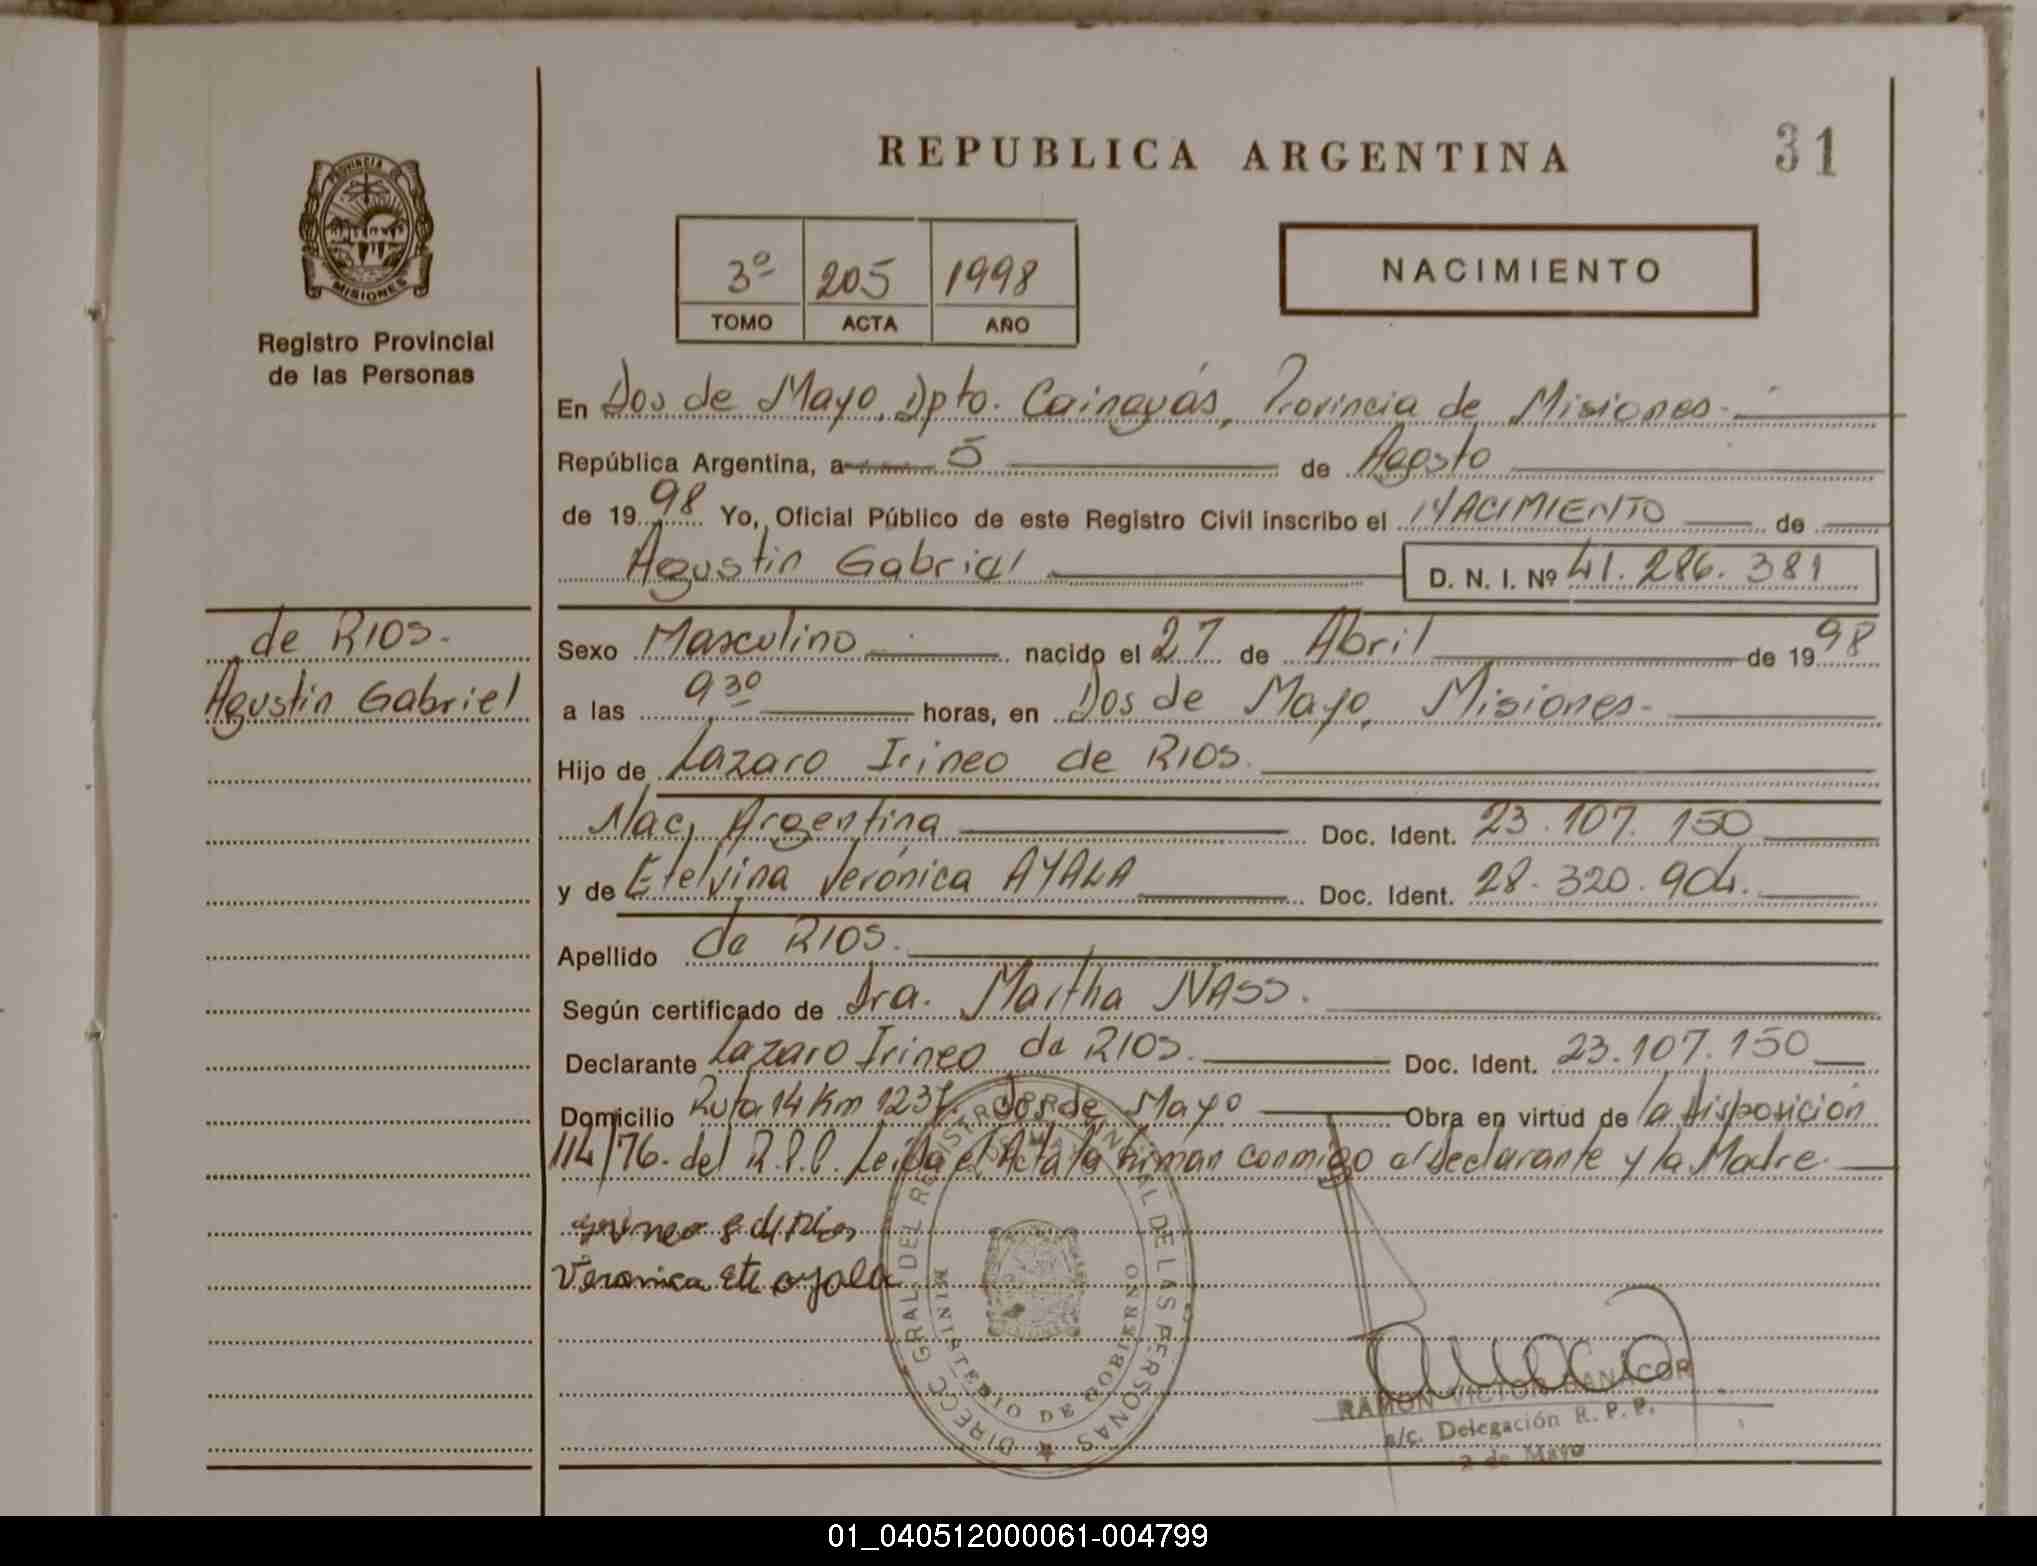 REPUBLICA ARGENTINA
31
PROVINCIA DE
MISIONES
Registro Provincial
de las Personas
3º 205 1998
TOMO ACTA AÑO
NACIMIENTO
En Dos de Mayo, Dpto. Cainguás, Provincia de Misiones.
República Argentina, a 5 de Agosto
de 1998 Yo, Oficial Público de este Registro Civil inscribo el NACIMIENTO de
Agustin Gabriel D. N. I. Nº 41.286.381
de RIOS.
Agustin Gabriel
Sexo Masculino nacido el 27 de Abril de 1998
a las 930 horas, en Dos de Mayo, Misiones-
Hijo de Lazaro Irineo de RIOS.
Nac. Argentina Doc. Ident. 23.107.150
y de Etelvina Verónica AYALA Doc. Ident. 28.320.904.
Apellido de RIOS.
Según certificado de Dra. Martha NASS.
Declarante Lazaro Irineo de RIOS. Doc. Ident. 23.107.150
Domicilio Ruta 14 Km 1237. Dos de Mayo Obra en virtud de la disposición
114/76. del R.P.P. Leida el Acta la firman conmigo el declarante y la Madre.
Veronica Ete ayala
DIRECC GRAL DEL REGISTRO PROVINCIAL DE LAS PERSONAS
MINISTERIO DE GOBIERNO
RAMON VICTOR
a/c. Delegación R. P. P.
2 de Mayo
01_040512000061-004799